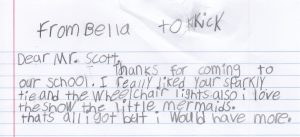 From Bella to KKick
Dear Mr. Scott,
Thanks for coming to
our school. I really liked your sparkly
tie and the wheelchair lights. also i love
the show the little mermaids.
thats all i got but i would have more.